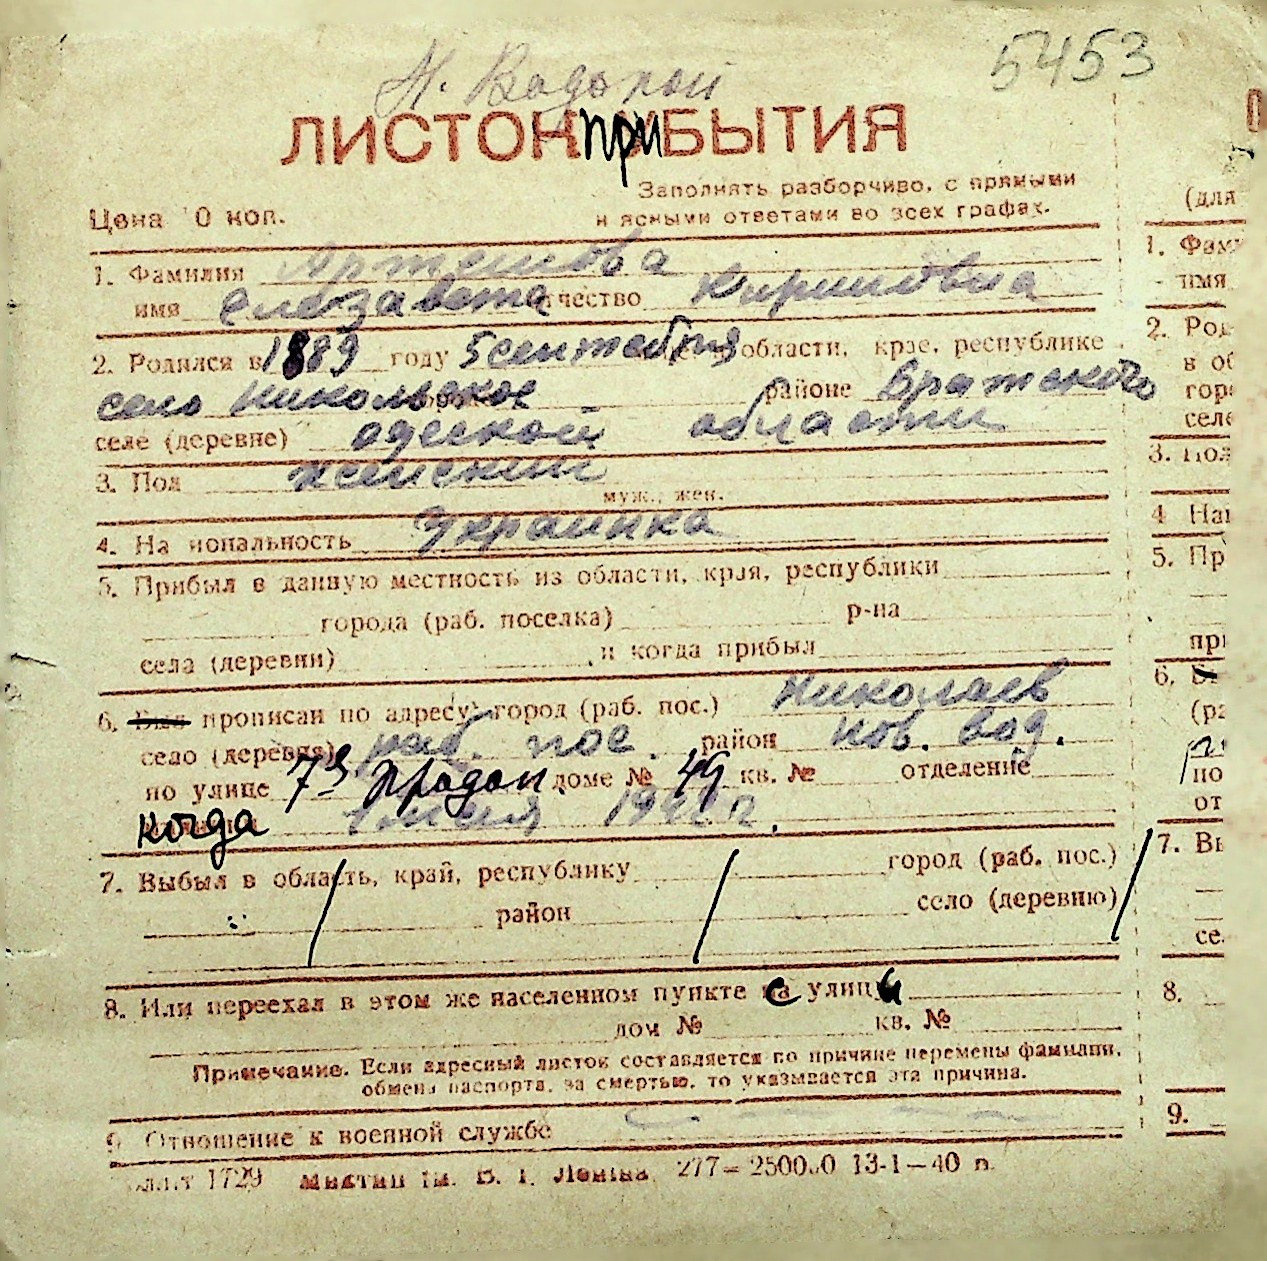 5453
Н. Водопой
ЛИСТОК прибЫТИЯ
Заполнять разборчиво, с прямыми
и ясными ответами во всех графах.
Цена 10 коп.
1. Фамилия Артемова
имя Елезавета отчество
2. Родился в 1889 году 5 сентября области, крае, республике
село Никольское районе Братского
селе (деревне) одеской области
3. Пол женский
муж., жен.
4. Национальность Украинка
5. Прибыл в данную местность из области, края, республики
города (раб. поселка) р-на
села (деревни) и когда прибыл
6. Был прописан по адресу: город (раб. пос.) Николаев
село (деревня) раб. пос. район нов. вод.
по улице 7я Продол доме № 49 кв. № отделение
когда
7. Выбыл в область, край, республику город (раб. пос.)
район село (деревню)
8. Или переехал в этом же населенном пункте с улицы
дом № кв. №
Примечание. Если адресный листок составляется по причине перемены фамилии,
обмена паспорта, за смертью, то указывается эта причина.
9. Отношение к военной службе
1729 ім. В. І. Леніна. 277— 13-1—40 п.
(для
1. Фам
имя
2. Род
в об
гор
селе
3. Пол
4 Нац
5. Пр
при
6.
(ра
по
от
7. Вы
се.
8.
9.